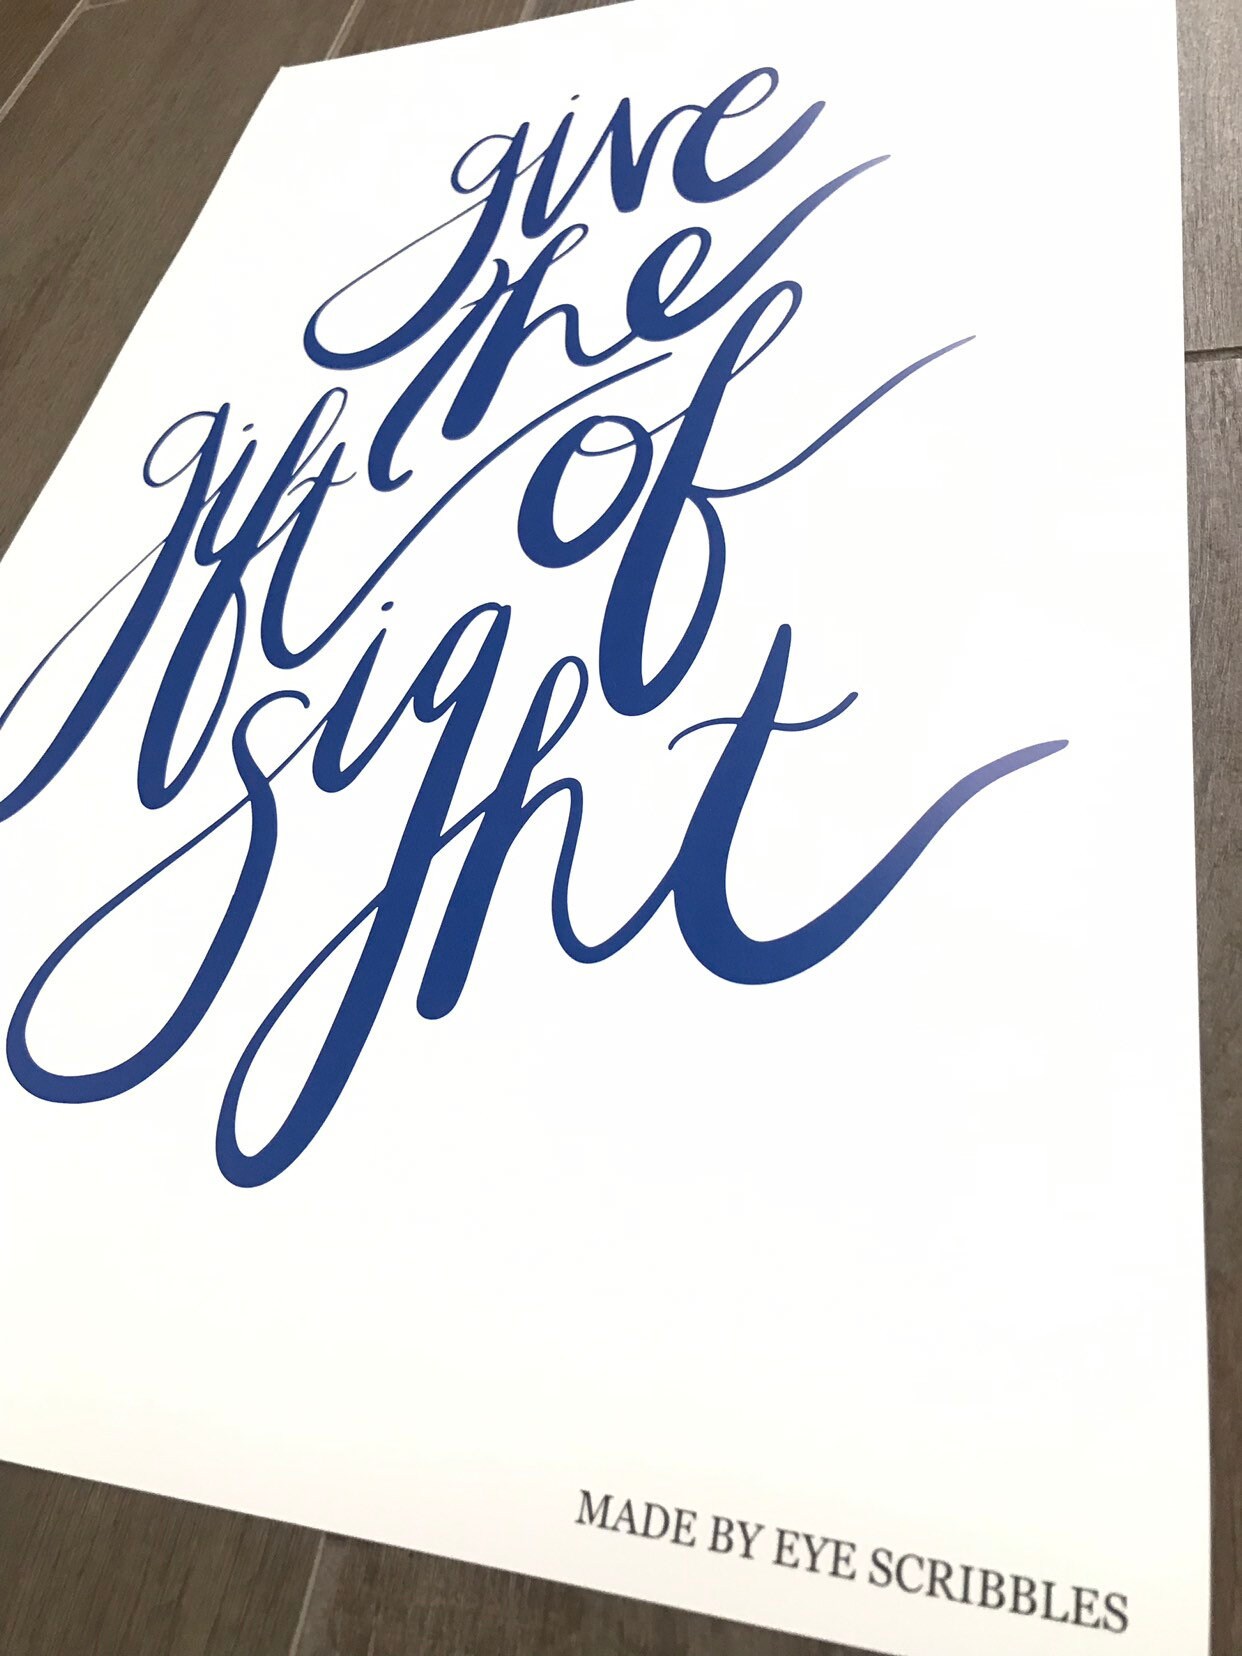 give
the
gift of
sight
MADE BY EYE SCRIBBLES